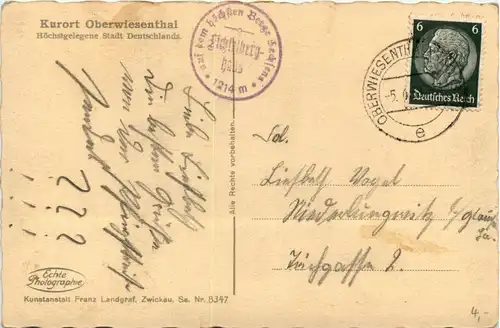 Kurort Oberwiesenthal
Höchstgelegene Stadt Deutschlands.
auf dem höchsten Berge Sachsens
Fichtelberg-
haus
* 1214 m *
6 6
Deutsches Reich
OBERWIESENTH
-5.
e
Liebe Liesbeth
Die besten Grüße
von der
???
Alle Rechte vorbehalten.
Liesbeth Vogel
Niederlungwitz b/Glauch
i/Sa.
2.
Echte
Photographie
Kunstanstalt Franz Landgraf, Zwickau. Sa. Nr. 8347
4,-